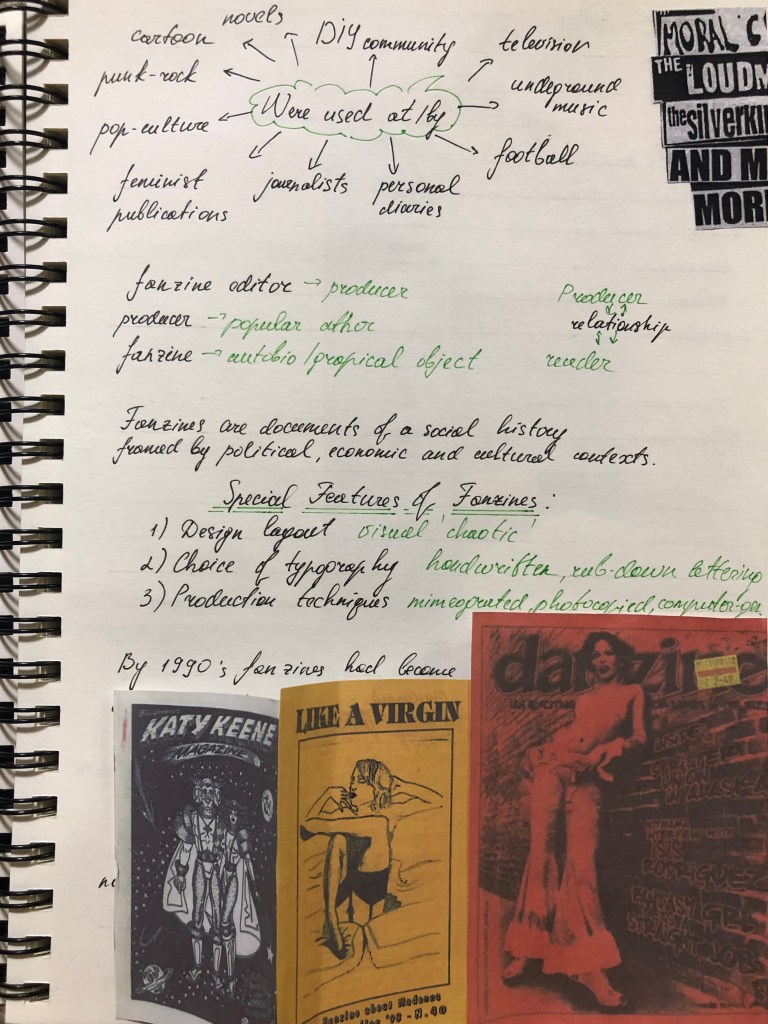 novels
cartoon
DiY community
television
punk-rock
undeground
music
Were used at/by
pop-culture
football
feminist
publications
journalists
personal
diaries
MORAL C
THE LOUDM
the silverkin
AND M
MORE
fanzine editor → producer
producer → popular athor
fanzine → autobio/gropical object
Producer
relationship
reader
Fanzines are documents of a social history
framed by political, economic and cultural contexts.
Special Features of Fanzines:
1) Design layout visual 'chaotic'
2) Choice of typography handwritten, rub-down lettering
3) Production techniques mimeograted, photocopied, computer-gen
By 1990's fanzines had become
KATY KEENE
MAGAZINE
LIKE A VIRGIN
Fanzine about Madonna
'98 - N.40
danzine